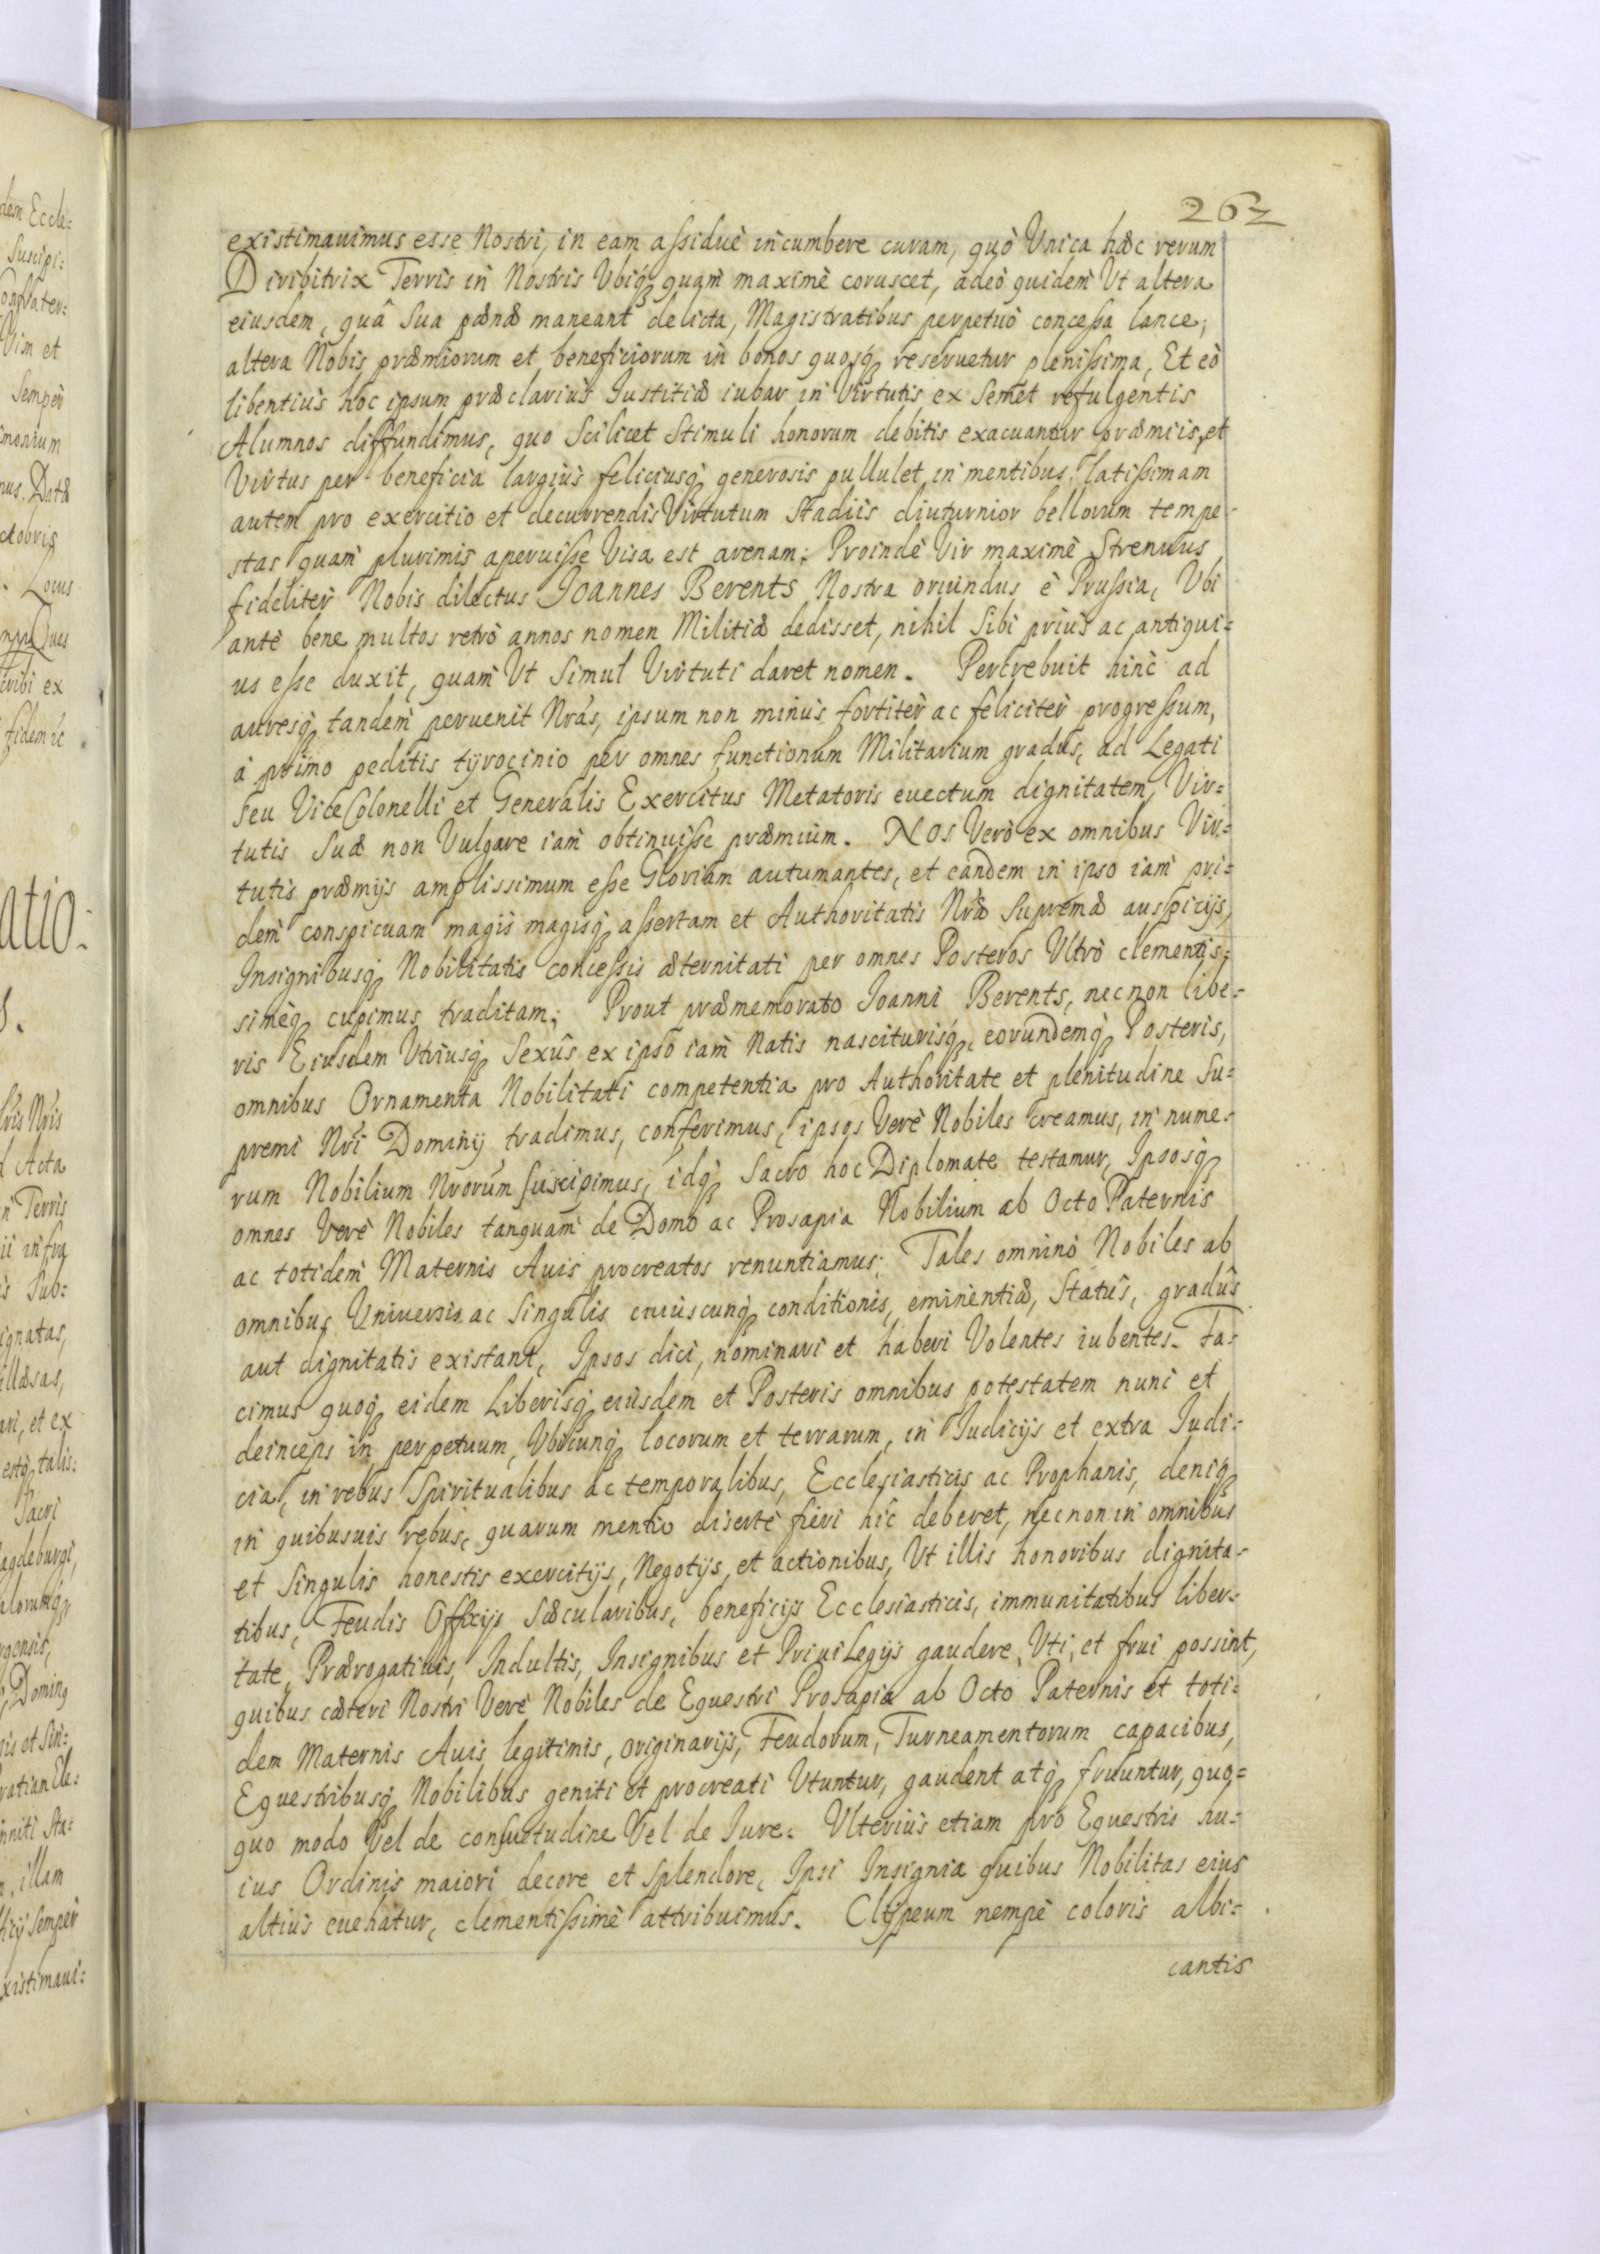 262
existimauimus esse Nostri, in eam assiduè incumbere curam, quò Vnica hæc rerum
Diribitrix Terris in Nostris Vbiq́ꝫ quam maximè coruscet, adeò quidem Vt altera
eiusdem, quâ Sua pænæ maneant delicta, Magistratibus perpetuò concessa lance,
altera Nobis præmiorum et beneficiorum in bonos quosq́ꝫ reseruetur plenissima, Et eò
libentius hoc ipsum præclarius Justitiæ iubar in Virtutis ex Semet refulgentis
Alumnos diffundimus, quo Scilicet Stimuli honorum debitis exacuantur præmiis, et
Virtus per beneficia largiùs feliciusq́ꝫ generosis pullulet in mentibus. Latissimam
autem pro exercitio et decurrendis Virtutum Stadiis diuturnior bellorum tempe-
stas quam plurimis aperuisse Visa est arenam; Proindè Vir maximè Strenuus
fideliter Nobis dilectus Joannes Berents Nostra oriundus è Prussia, Vbi
antè bene multos retrò annos nomen Militiæ dedisset, nihil Sibi priùs ac antiqui=
us esse duxit, quam Vt Simul Virtuti daret nomen. Percrebuit hinc ad
auresq́ꝫ tandem peruenit Nrás, ipsum non minùs fortitèr ac felicitèr progressum,
à primo peditis tÿrocinio per omnes functionum Militarium gradus, ad Legati
Seu ViceColonelli et Generalis Exercitus Metatoris euectum dignitatem, Vir=
tutis Suæ non Vulgare iam obtinuisse præmium. NOS Verò ex omnibus Vir=
tutis præmijs amplissimum esse Gloriam autumantes, et eandem in ipso iam pri=
dem conspicuam magis magisq́ꝫ assertam et Authoritatis Nræ Supremæ auspicijs,
Insignibusq́ꝫ Nobilitatis concessis æternitati per omnes Posteros Vltrò clementis=
simèq́ꝫ cupimus traditam; Prout præmemorato Joanni Berents, necnon libe=
ris Eiusdem Vtriusq́ꝫ Sexûs ex ipso iam Natis nascituriśq́ꝫ, eorundemq́ꝫ Posteris,
omnibus Ornamenta Nobilitati competentia pro Authoritate et plenitudine Su=
premi Nrí Dominij tradimus, conferimus, ipsos Verè Nobiles creamus, in nume=
rum Nobilium Nrorúm suscipimus, idq́ꝫ Sacro hoc Diplomate testamur, Ipsosq́ꝫ
omnes Verè Nobiles tanquam de Domo ac Prosapia Nobilium ab Octo Paternis
ac totidem Maternis Auis procreatos renuntiamus; Tales omninò Nobiles ab
omnibus Vniuersis ac Singulis cuiuscunq́ꝫ conditionis, eminentiæ, Statûs, gradûs
aut dignitatis existant, Ipsos dici, nominari et haberi Volentes iubentes. Fa=
cimus quoq́ꝫ eidem Liberisq́ꝫ eiusdem et Posteris omnibus potestatem nunc et
deinceps in perpetuum, Vbicunq́ꝫ locorum et terrarum, in Judicijs et extra Judi=
cia, in rebus Spiritualibus ac temporalibus, Ecclesiasticis ac Prophanis, deniq́ꝫ
in quibusuis rebus, quarum mentio disertè fieri hîc deberet, necnon in omnibus
et Singulis honestis exercitijs, Negotijs, et actionibus, Vt illis honoribus dignita=
tibus, Feudis Officijs Sæcularibus, beneficijs Ecclesiasticis, immunitatibus liber=
tate, Prærogatiuis, Indultis, Insignibus et Priuilegijs gaudere, Vti, et frui possint,
quibus cæteri Nostri Verè Nobiles de Equestri Prosapia ab Octo Paternis et toti=
dem Maternis Auis legitimis, originarijs, Feudorum, Turneamentorum capacibus,
Equestribusq́ꝫ Nobilibus geniti et procreati Vtuntur, gaudent atq́ꝫ fruuntur, quo=
quo modo Vel de consuetudine Vel de Jure. Vlteriùs etiam pro Equestris hu=
ius Ordinis maiori decore et Splendore, Ipsi Insignia quibus Nobilitas eius
altiùs euehatur, clementissimè attribuimus. Clÿpeum nempè coloris albi=
cantis